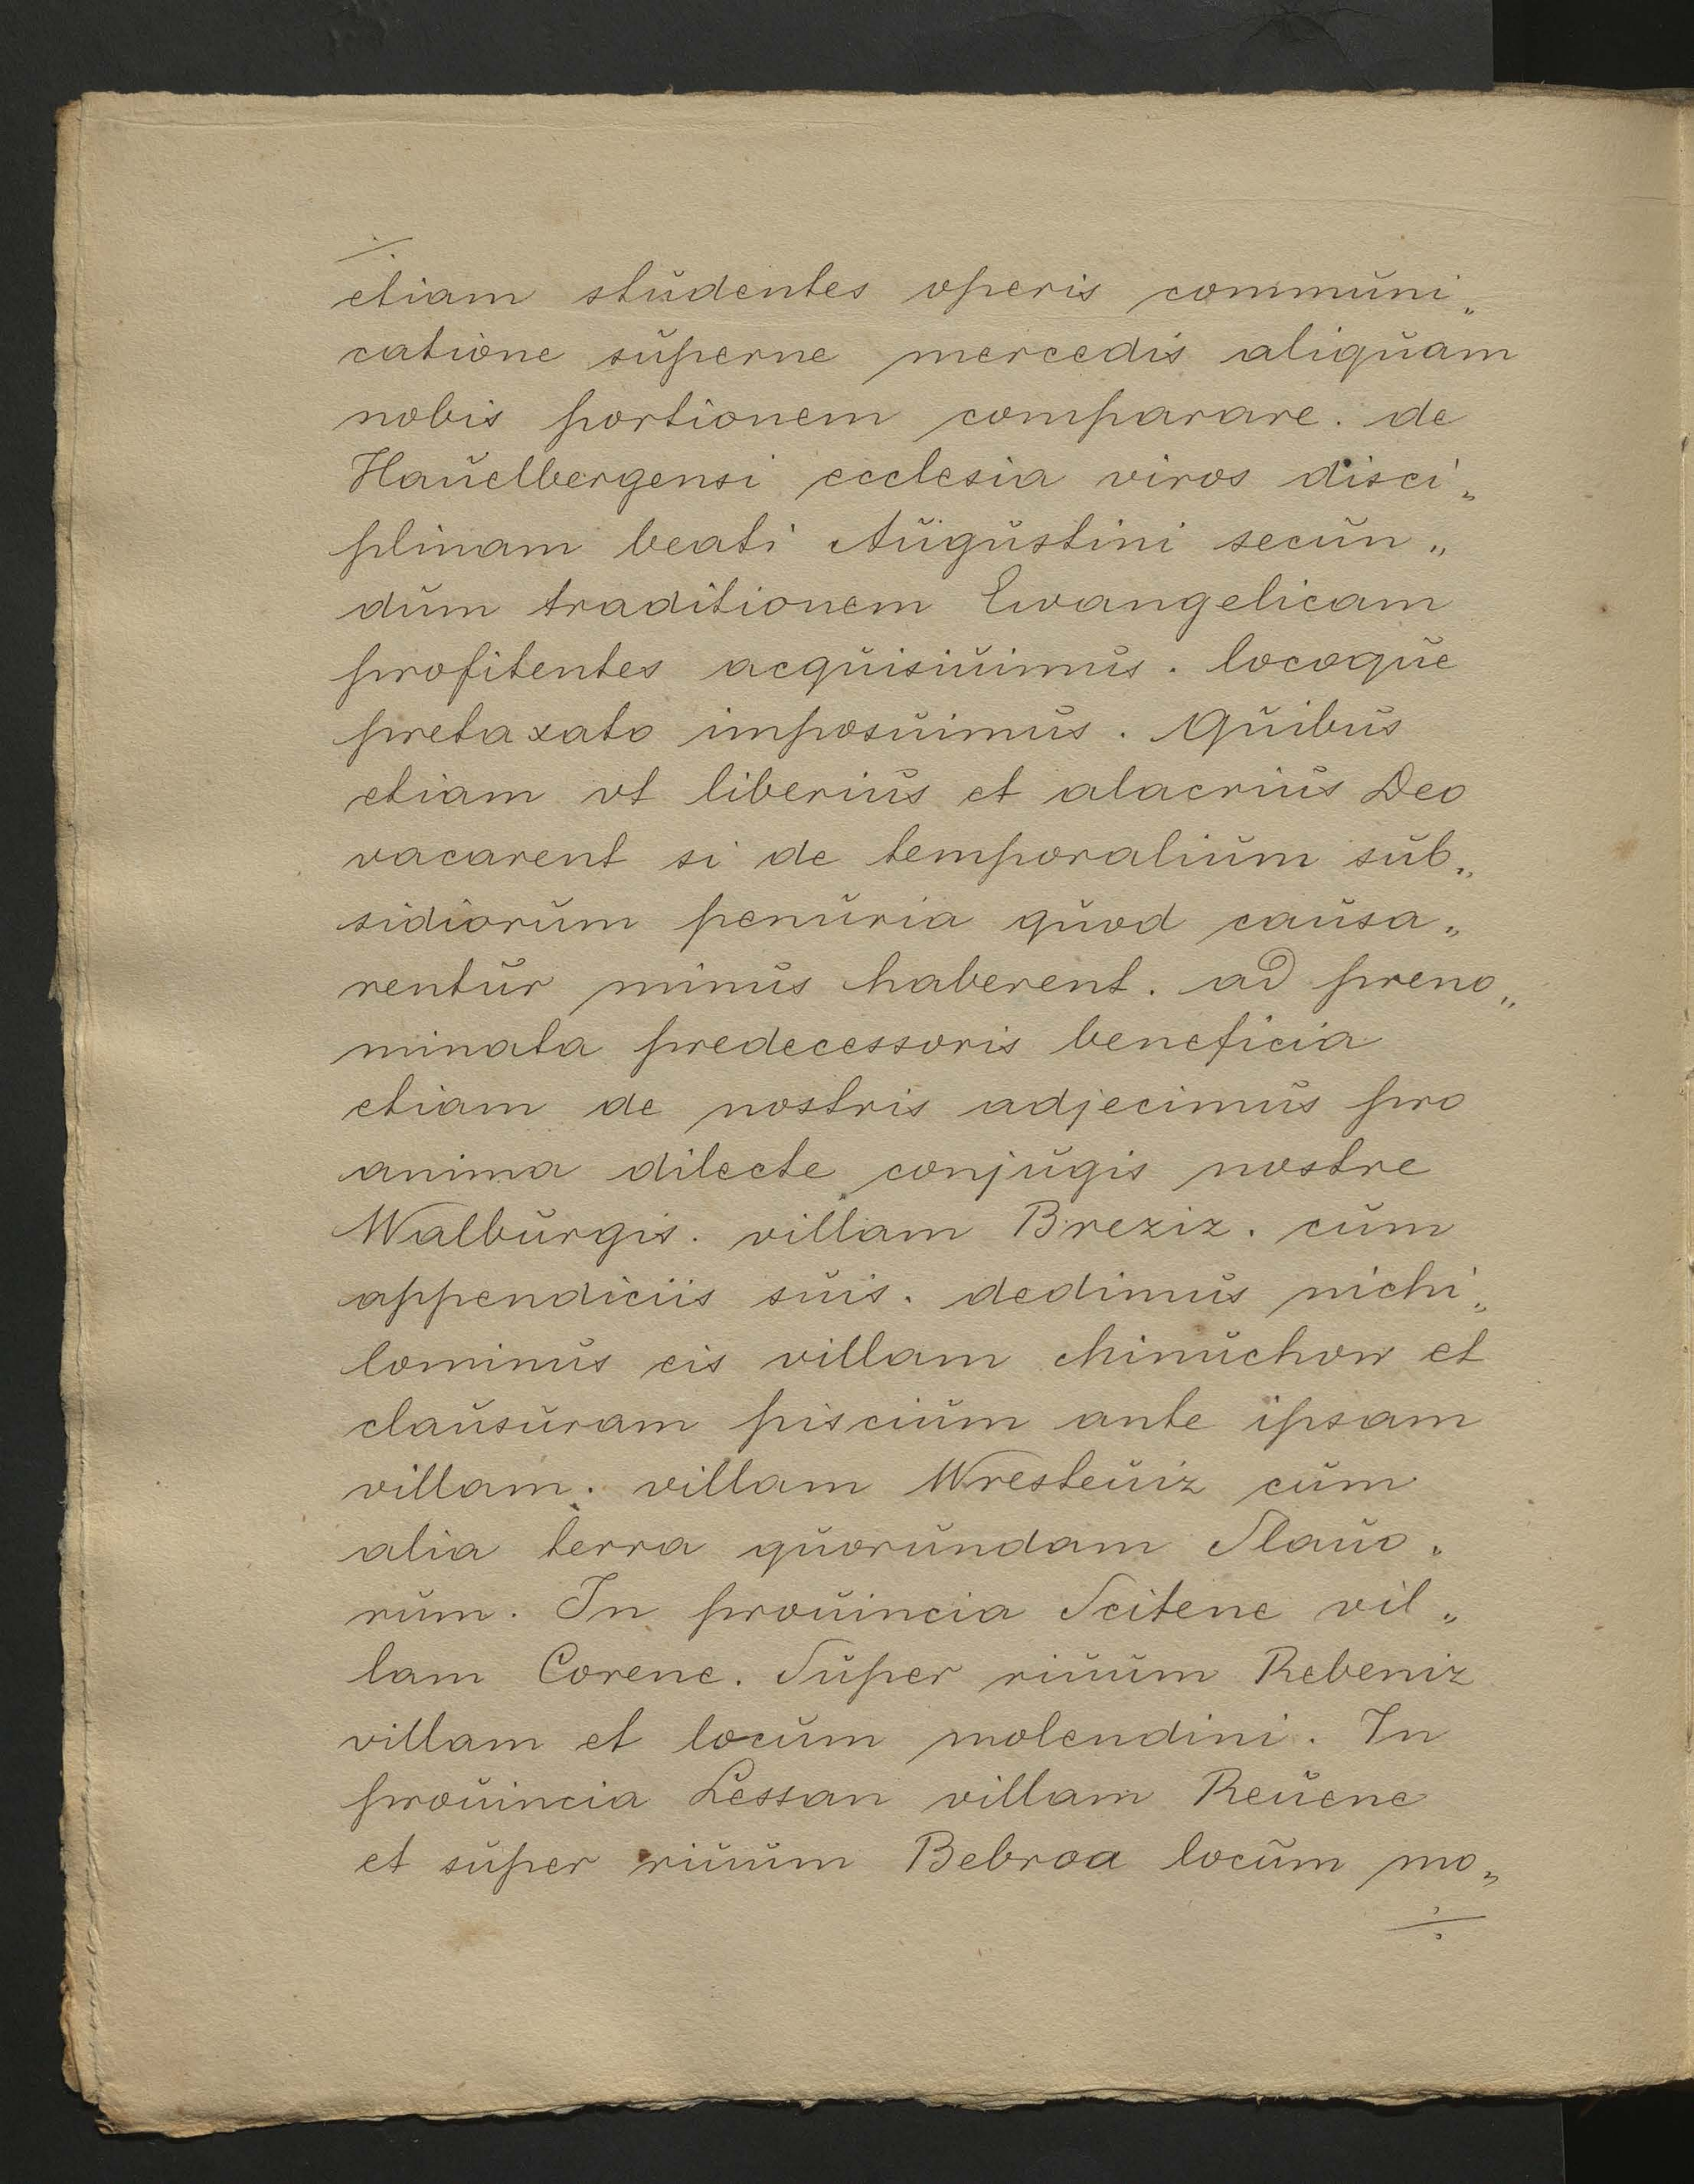 ÷
etiam studentes operis communi„
catione superne mercedis aliquam
nobis portionem comparare. de
Hauelbergensi ecclesia viros disci„
plinam beati Augustini secun„
dum traditionem Ewangelicam
profitentes acquisiuimus. locoque
pretaxato imposuimus. Quibus
etiam vt liberius et alacrius Deo
vacarent si de temporalium sub„
sidiorum penuria quod causa„
rentur minus haberent. ad preno„
minata predecessoris beneficia
etiam de nostris adjecimus pro
anima dilecte conjugis nostre
Walburgis. villam Breziz. cum
appendiciis suis. dedimus nichi„
lominus eis villam Minuchow et
clausuram piscium ante ipsam
villam. villam Wresteuiz cum
alia terra quorundam Slauo„
rum. In prouincia Scitene vil„
lam Corene. Super riuum Rebeniz
villam et locum molendini. In
prouincia Lessan villam Reuene
et super riuum Bebroa locum mo„
÷